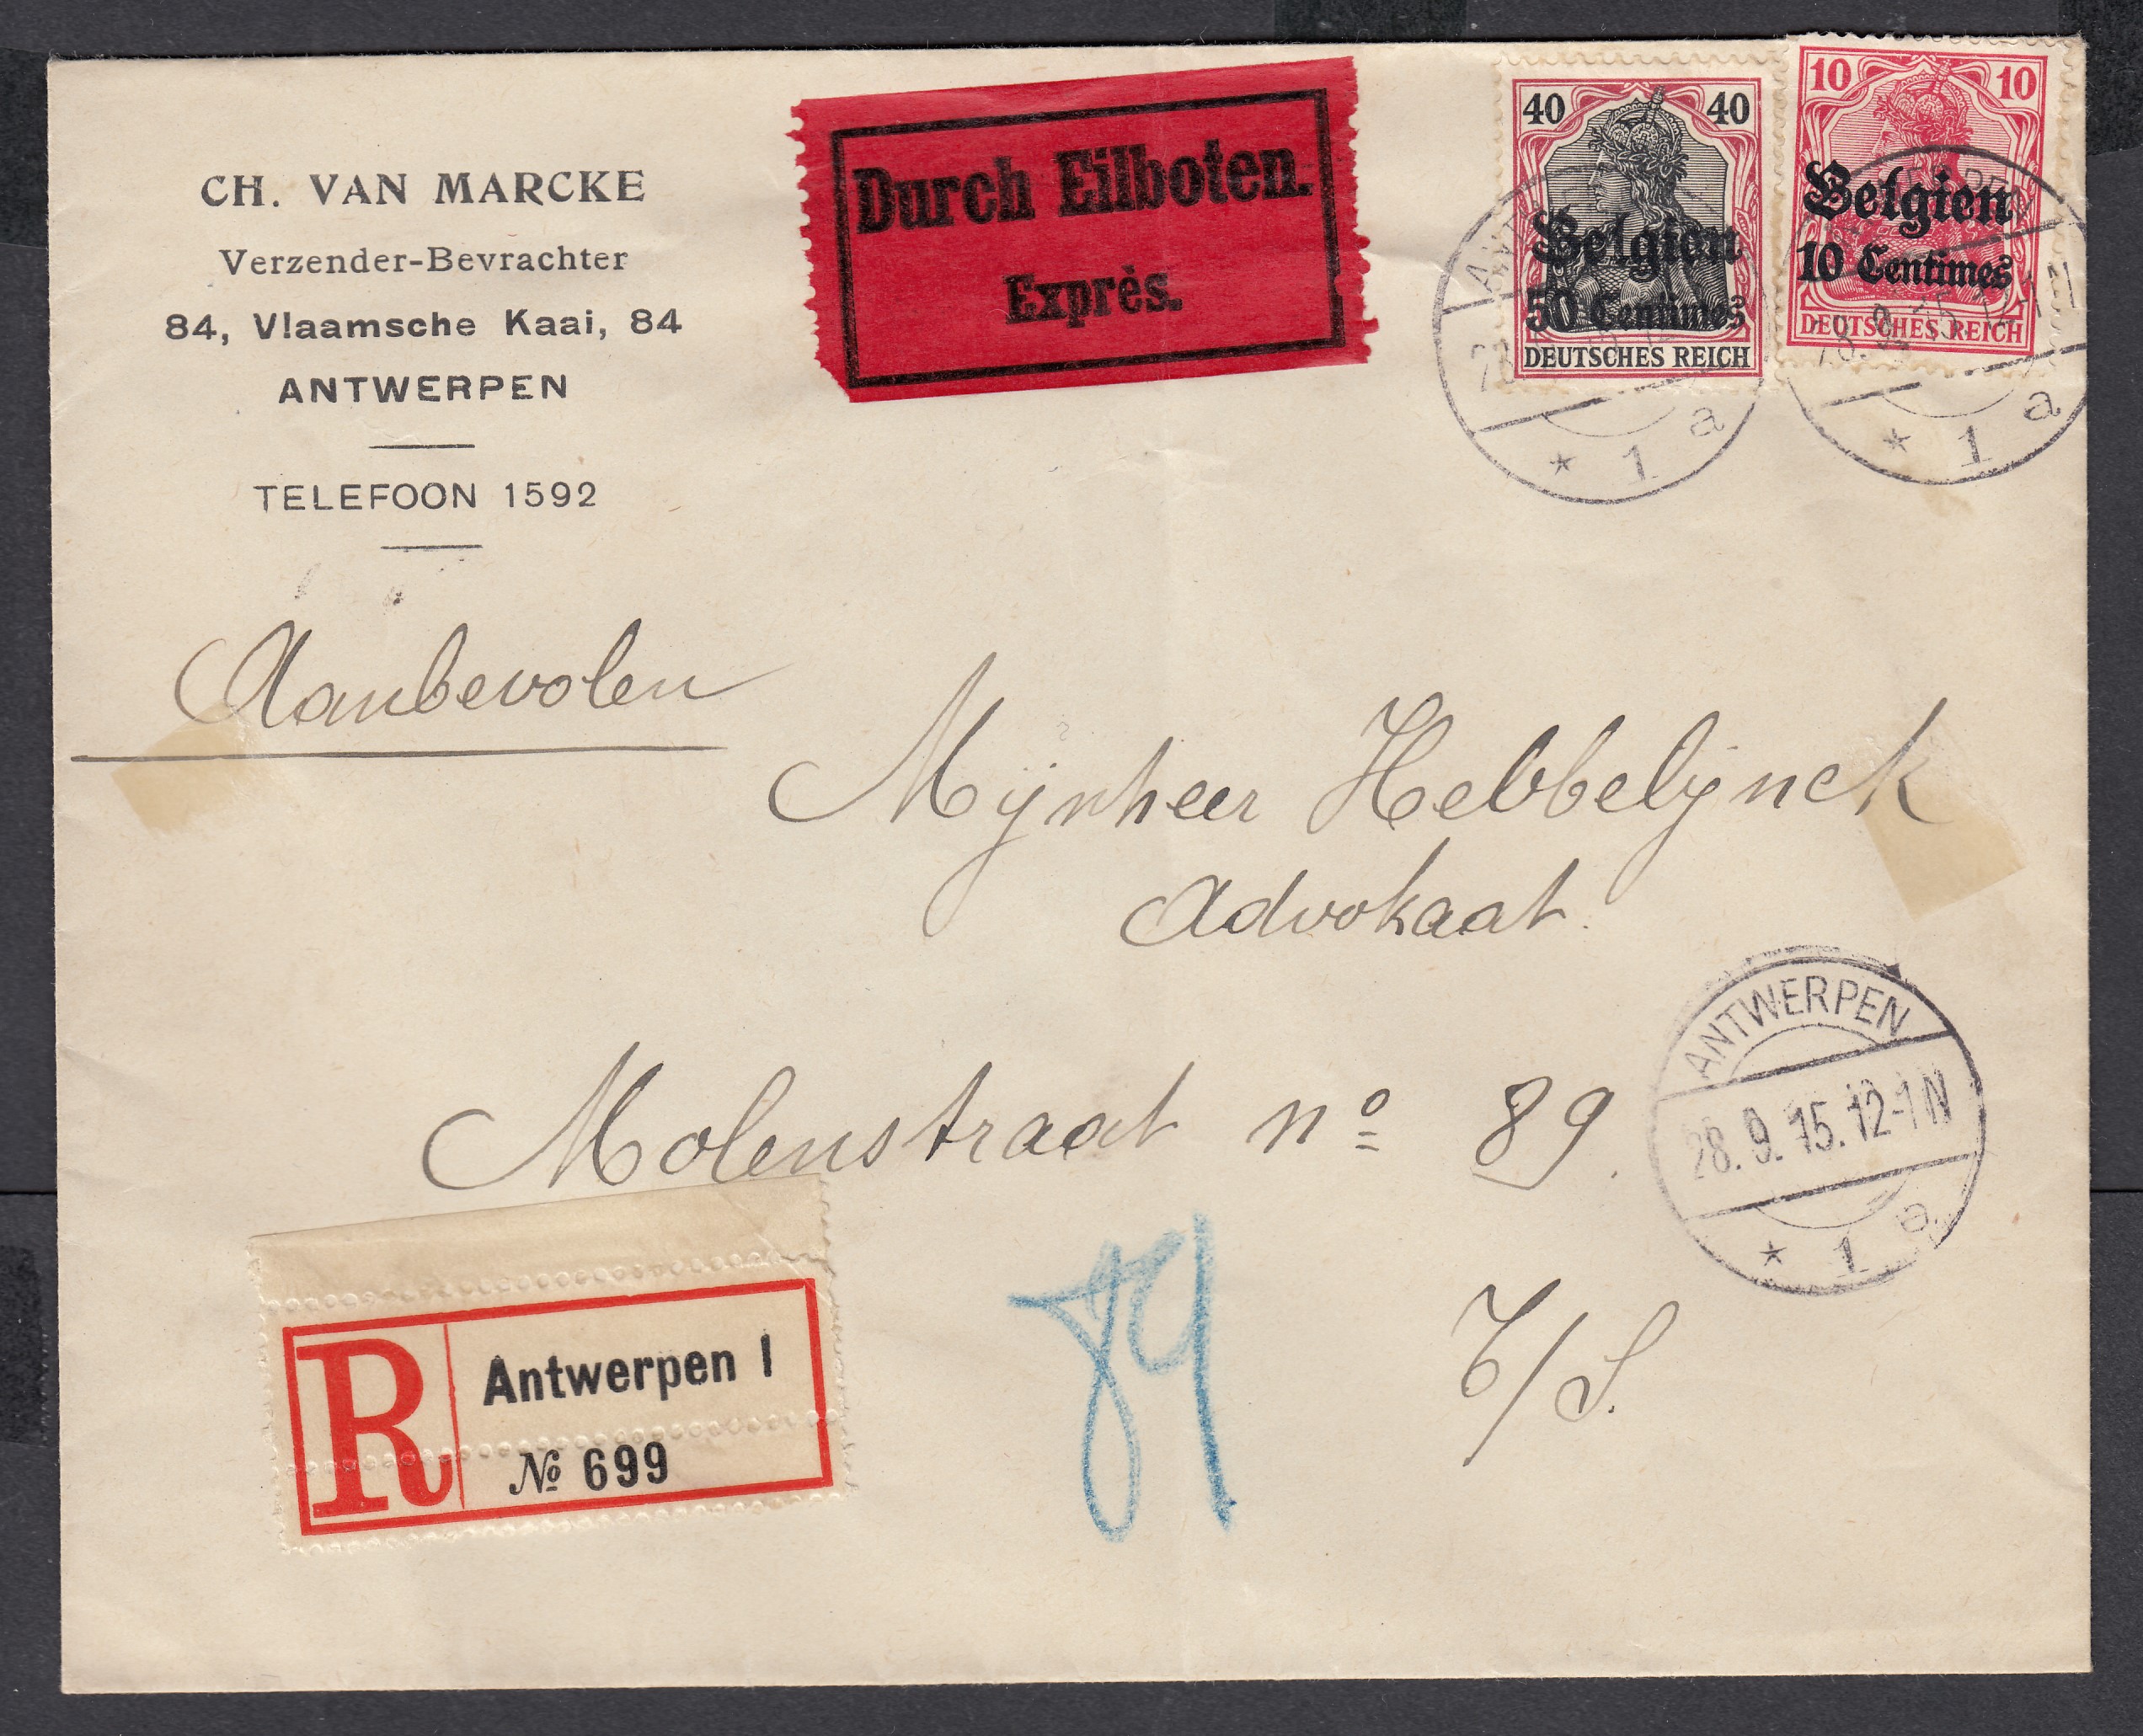 CH. VAN MARCKE
Verzender-Bevrachter
84, Vlaamsche Kaai, 84
ANTWERPEN
TELEFOON 1592
Durch Eilboten.
Exprès.
40 40
Belgien
50 Centimes
DEUTSCHES REICH
10 10
Belgien
10 Centimes
DEUTSCHES REICH
* 1 a
* 1 a
Aanbevolen
Mijnheer Hebbelijnck
Advokaat.
Molenstraat nº 89.
ANTWERPEN
28.9.15.12-1N
* 1 a
R Antwerpen 1
№ 699
89